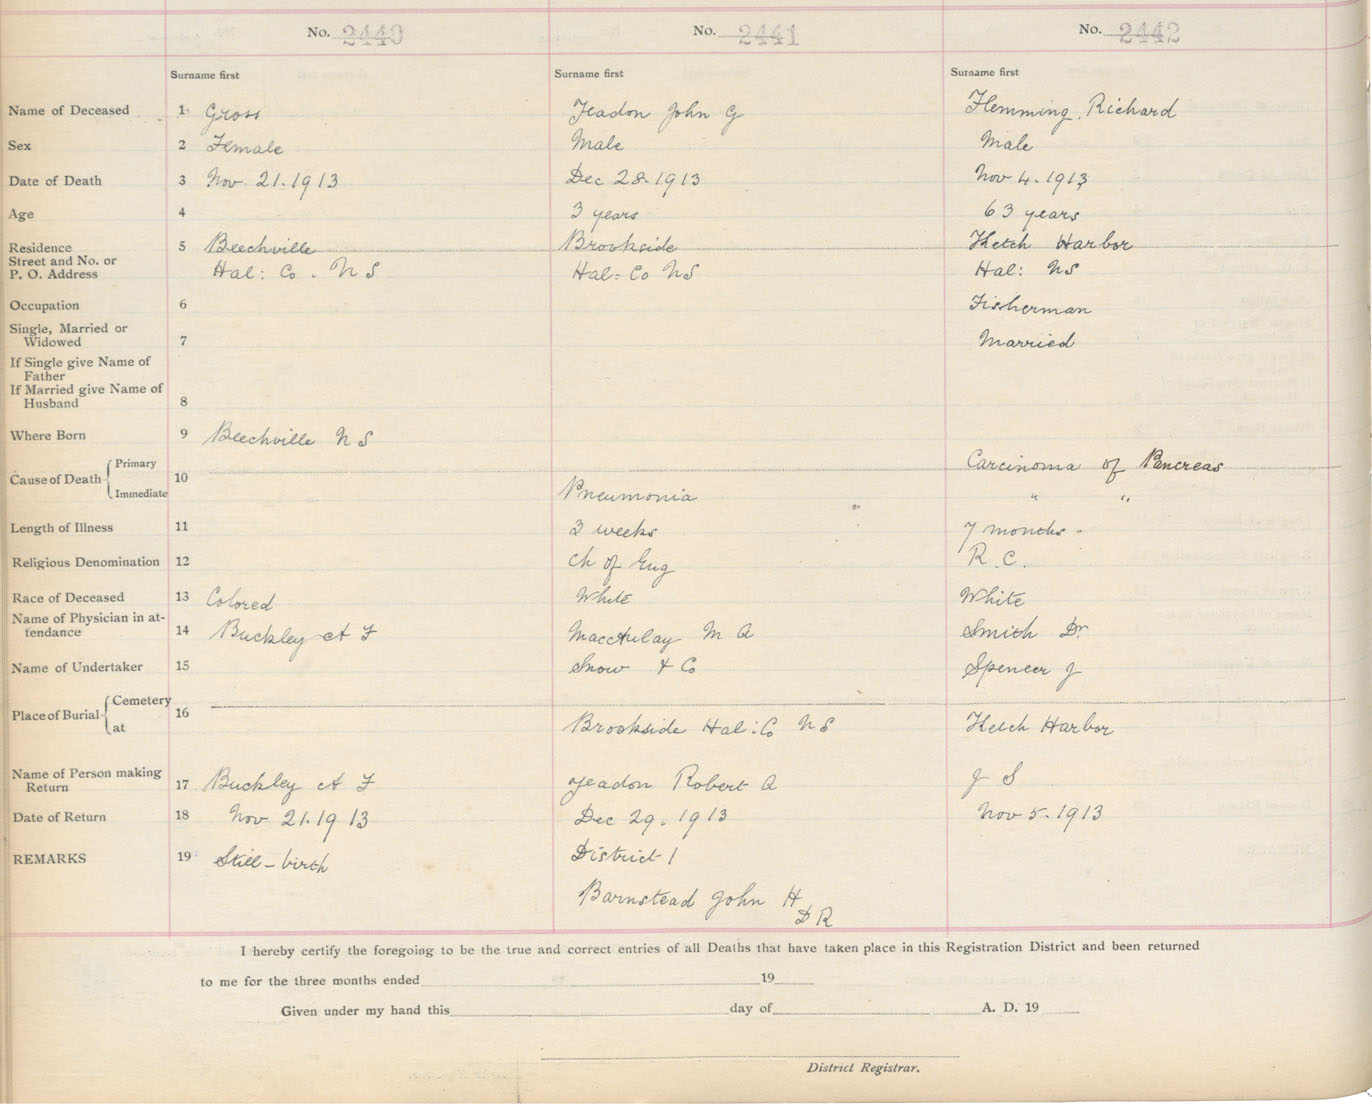 No. 2440 No. 2441 No. 2442
Surname first Surname first Surname first
Name of Deceased 1 Gross Yeadon John G Flemming, Richard
Sex 2 Female Male Male
Date of Death 3 Nov 21. 1913 Dec 28. 1913 Nov 4. 1913
Age 4 3 years 63 years
Residence 5 Beechville Brookside Ketch Harbor
Street and No. or
P. O. Address Hal: Co. N S Hal: Co N S Hal: NS
Occupation 6 Fisherman
Single, Married or
Widowed 7 Married
If Single give Name of
Father
If Married give Name of
Husband 8
Where Born 9 Beechville N S
Cause of Death 10 Primary Carcinoma of Pancreas
Immediate Pneumonia " "
Length of Illness 11 3 weeks 7 months -
Religious Denomination 12 Ch of Eng R. C.
Race of Deceased 13 Colored White White
Name of Physician in at-
tendance 14 Buckley A F MacAulay M A Smith Dr
Name of Undertaker 15 Snow & Co Spencer J
Place of Burial 16 Cemetery
at Brookside Hal: Co N S Ketch Harbor
Name of Person making
Return 17 Buckley A F Yeadon Robert A J S
Date of Return 18 Nov 21. 1913 Dec 29. 1913 Nov 5. 1913
REMARKS 19 Still-birth District 1
Barnstead John H
D R
I hereby certify the foregoing to be the true and correct entries of all Deaths that have taken place in this Registration District and been returned
to me for the three months ended 19
Given under my hand this day of A. D. 19
District Registrar.